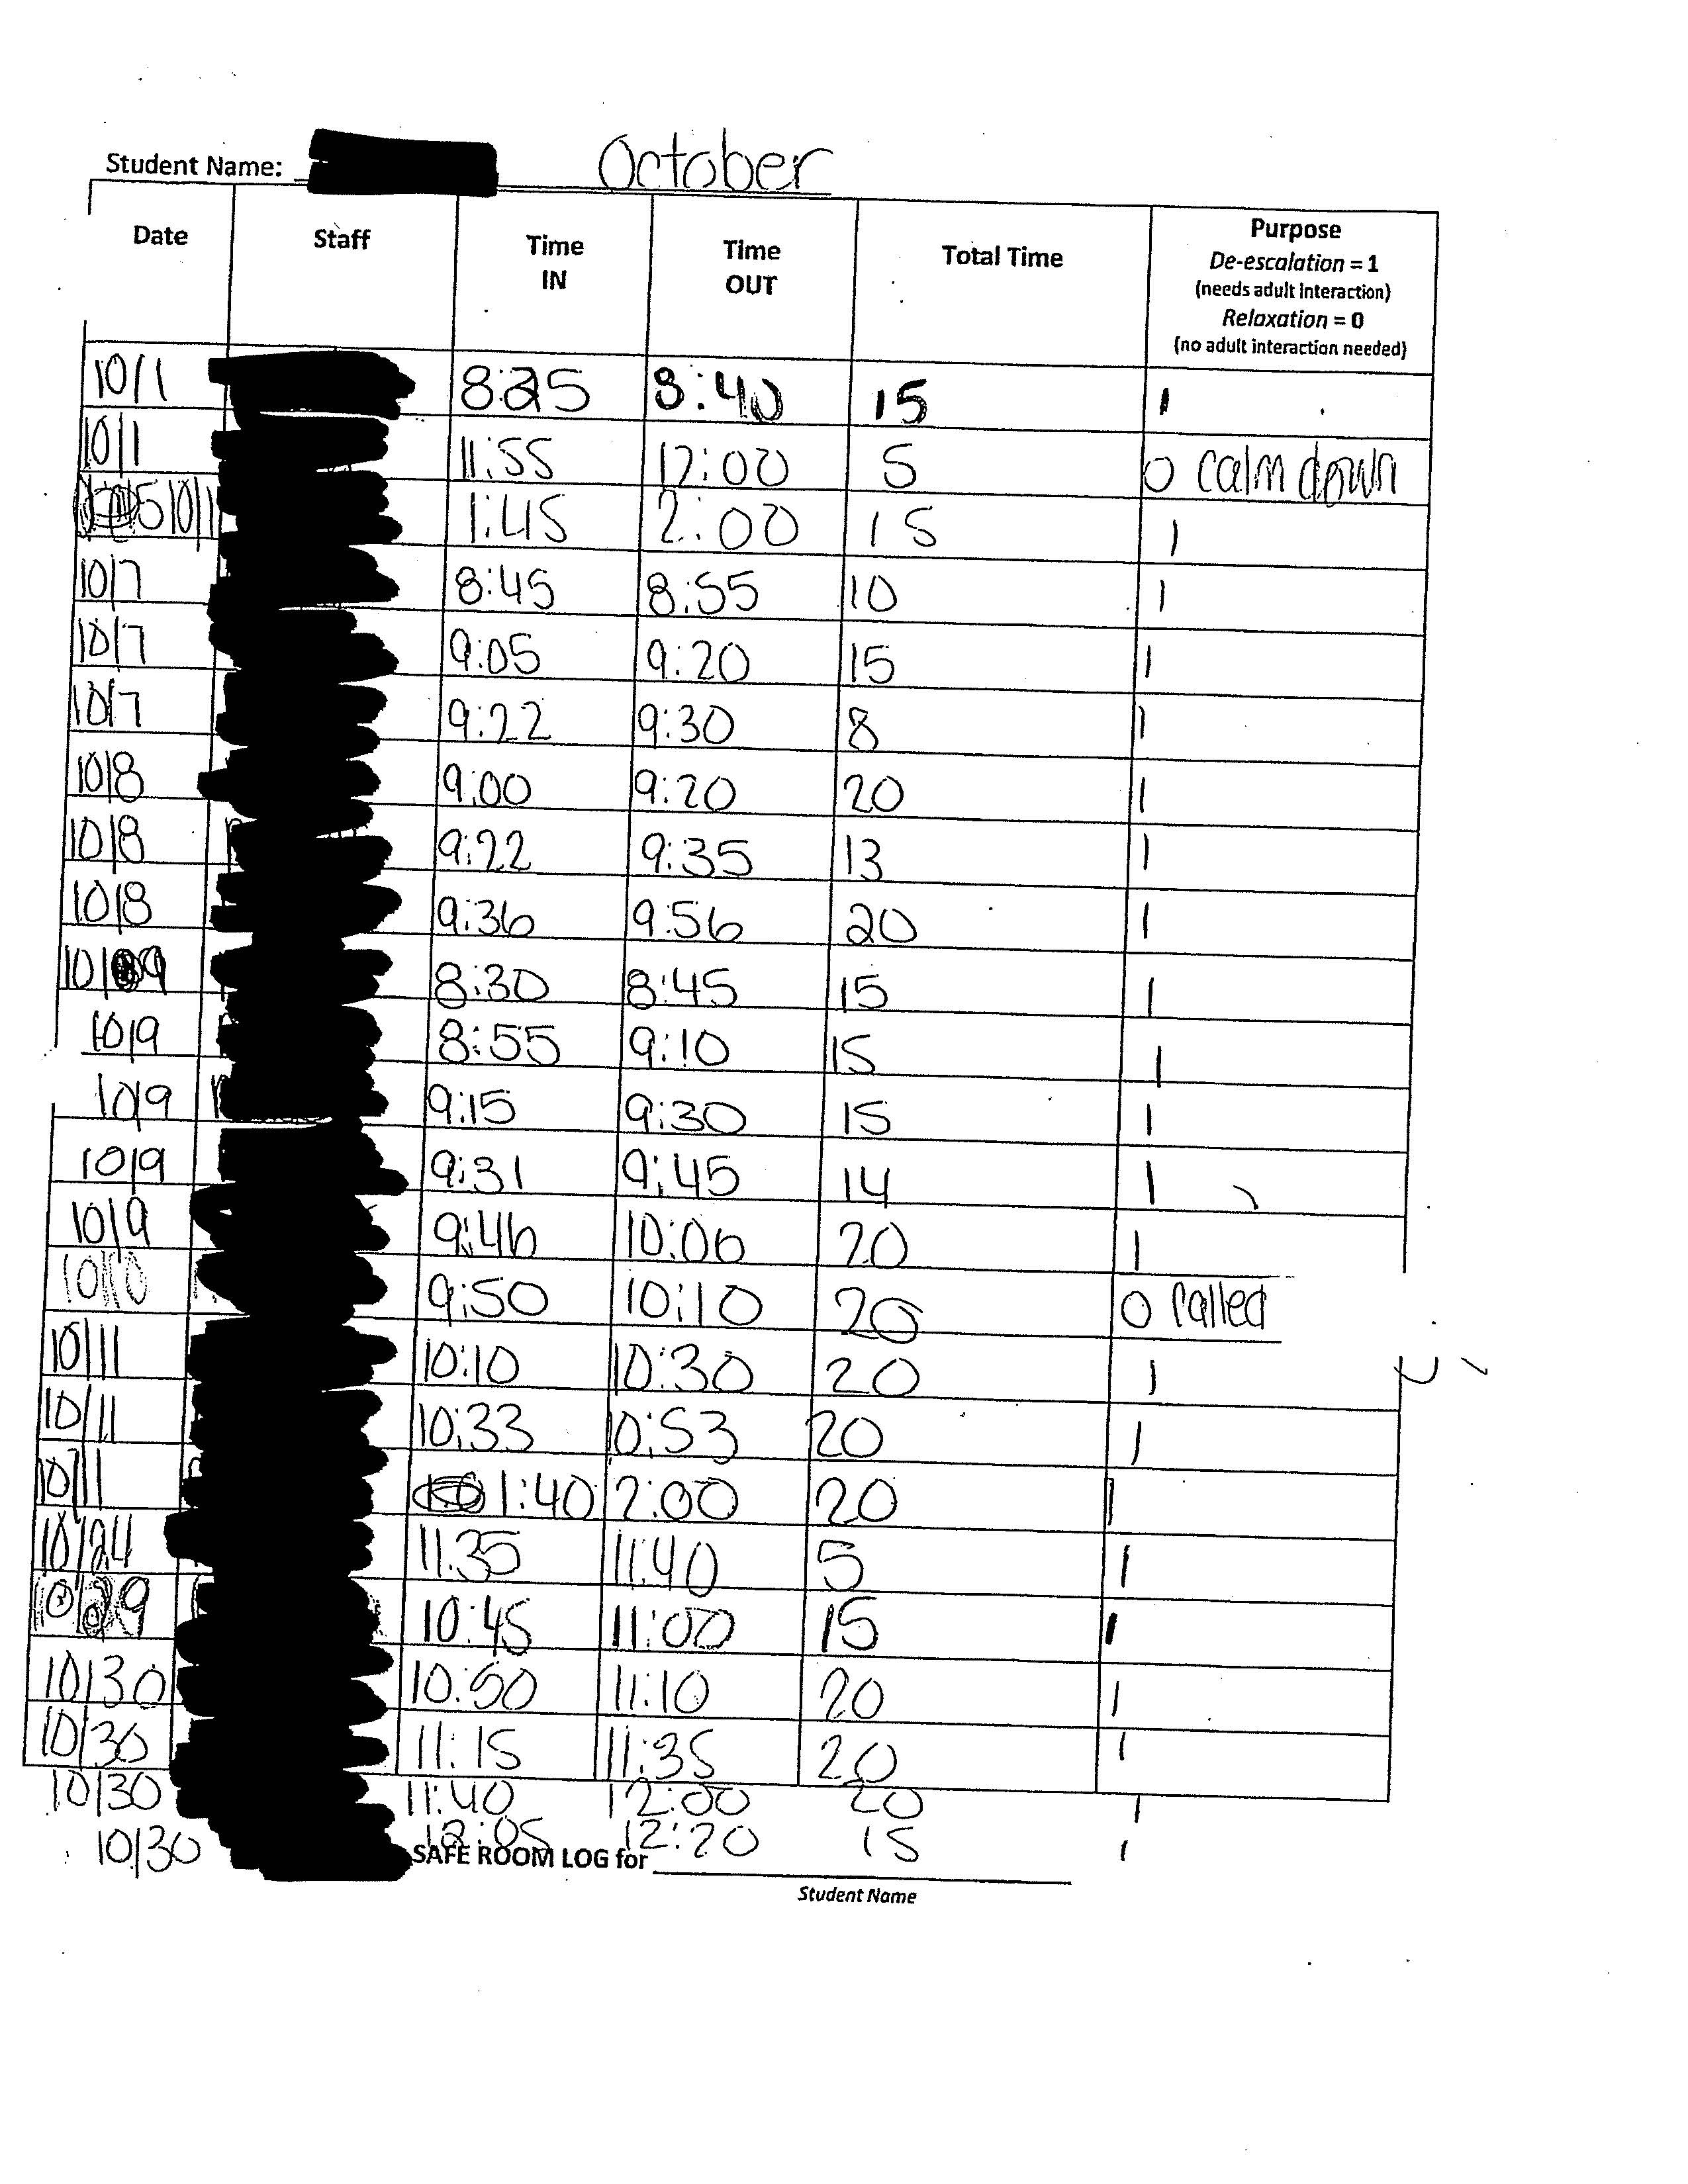 Student Name: October
Date Staff Time IN Time OUT Total Time Purpose
De-escalation = 1
(needs adult interaction)
Relaxation = 0
(no adult interaction needed)
10/1 8:25 8:40 15 1
10/1 11:55 12:00 5 0 calm down
10/1 1:45 2:00 15 1
10/7 8:45 8:55 10 1
10/7 9:05 9:20 15 1
10/7 9:22 9:30 8 1
10/8 9:00 9:20 20 1
10/8 9:22 9:35 13 1
10/8 9:36 9:56 20 1
10/9 8:30 8:45 15 1
10/9 8:55 9:10 15 1
10/9 9:15 9:30 15 1
10/9 9:31 9:45 14 1
10/9 9:46 10:06 20 1
10/10 9:50 10:10 20 0 called
10/11 10:10 10:30 20 1
10/11 10:33 10:53 20 1
10/11 1:40 2:00 20 1
10/24 11:35 11:40 5 1
10/29 10:45 11:00 15 1
10/30 10:50 11:10 20 1
10/30 11:15 11:35 20 1
10/30 11:40 12:00 20 1
10/30 12:05 12:20 15 1
SAFE ROOM LOG for
Student Name